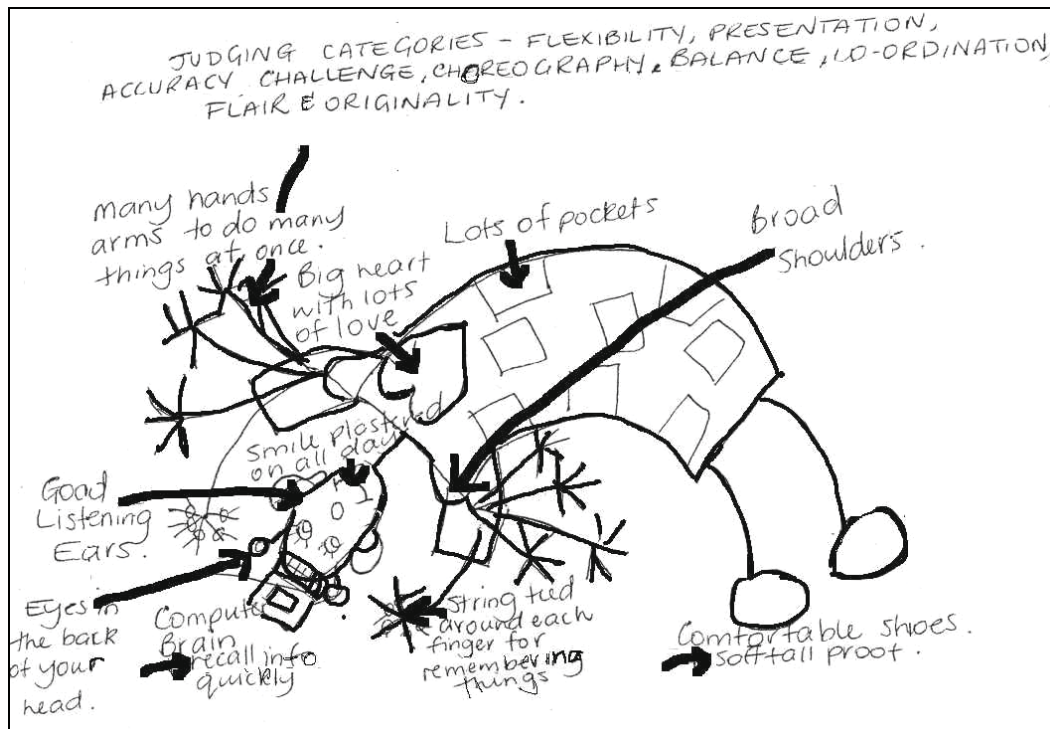 JUDGING CATEGORIES - FLEXIBILITY, PRESENTATION,
ACCURACY CHALLENGE, CHOREOGRAPHY, BALANCE, CO-ORDINATION,
FLAIR & ORIGINALITY.
many hands
arms to do many
things at once.
Big heart
with lots
of love
Lots of pockets
Broad
Shoulders.
Smile plastered
on all day
Good
Listening
Ears.
Eyes in
the back
of your
head.
Computer
Brain
recall info
quickly
String tied
around each
finger for
remembering
things
Comfortable shoes.
softfall proof.